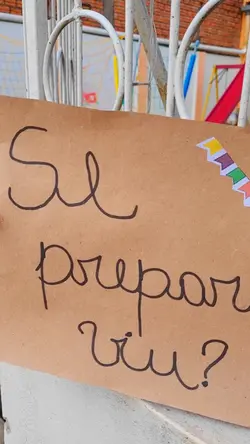 Se
prepar
viu?